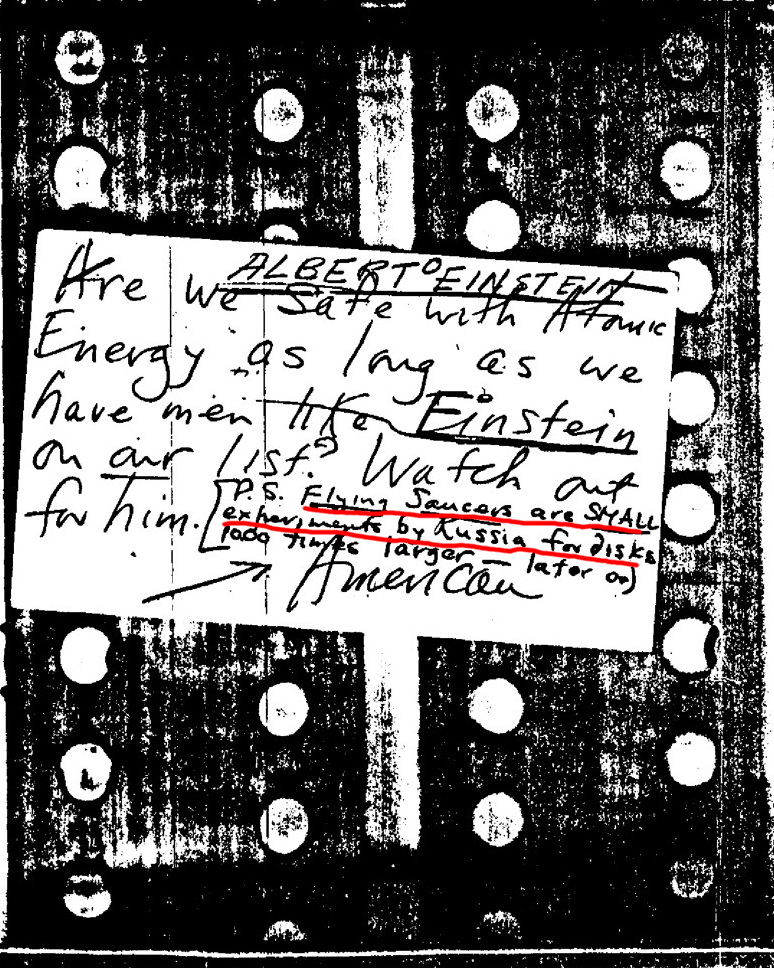 ALBERT EINSTEIN
Are we safe with Atomic
Energy as long as we
have men like Einstein
on our list? Watch out
for him. [P.S. Flying Saucers are SMALL
experiments by Russia for disks
1000 times larger — later on)
American